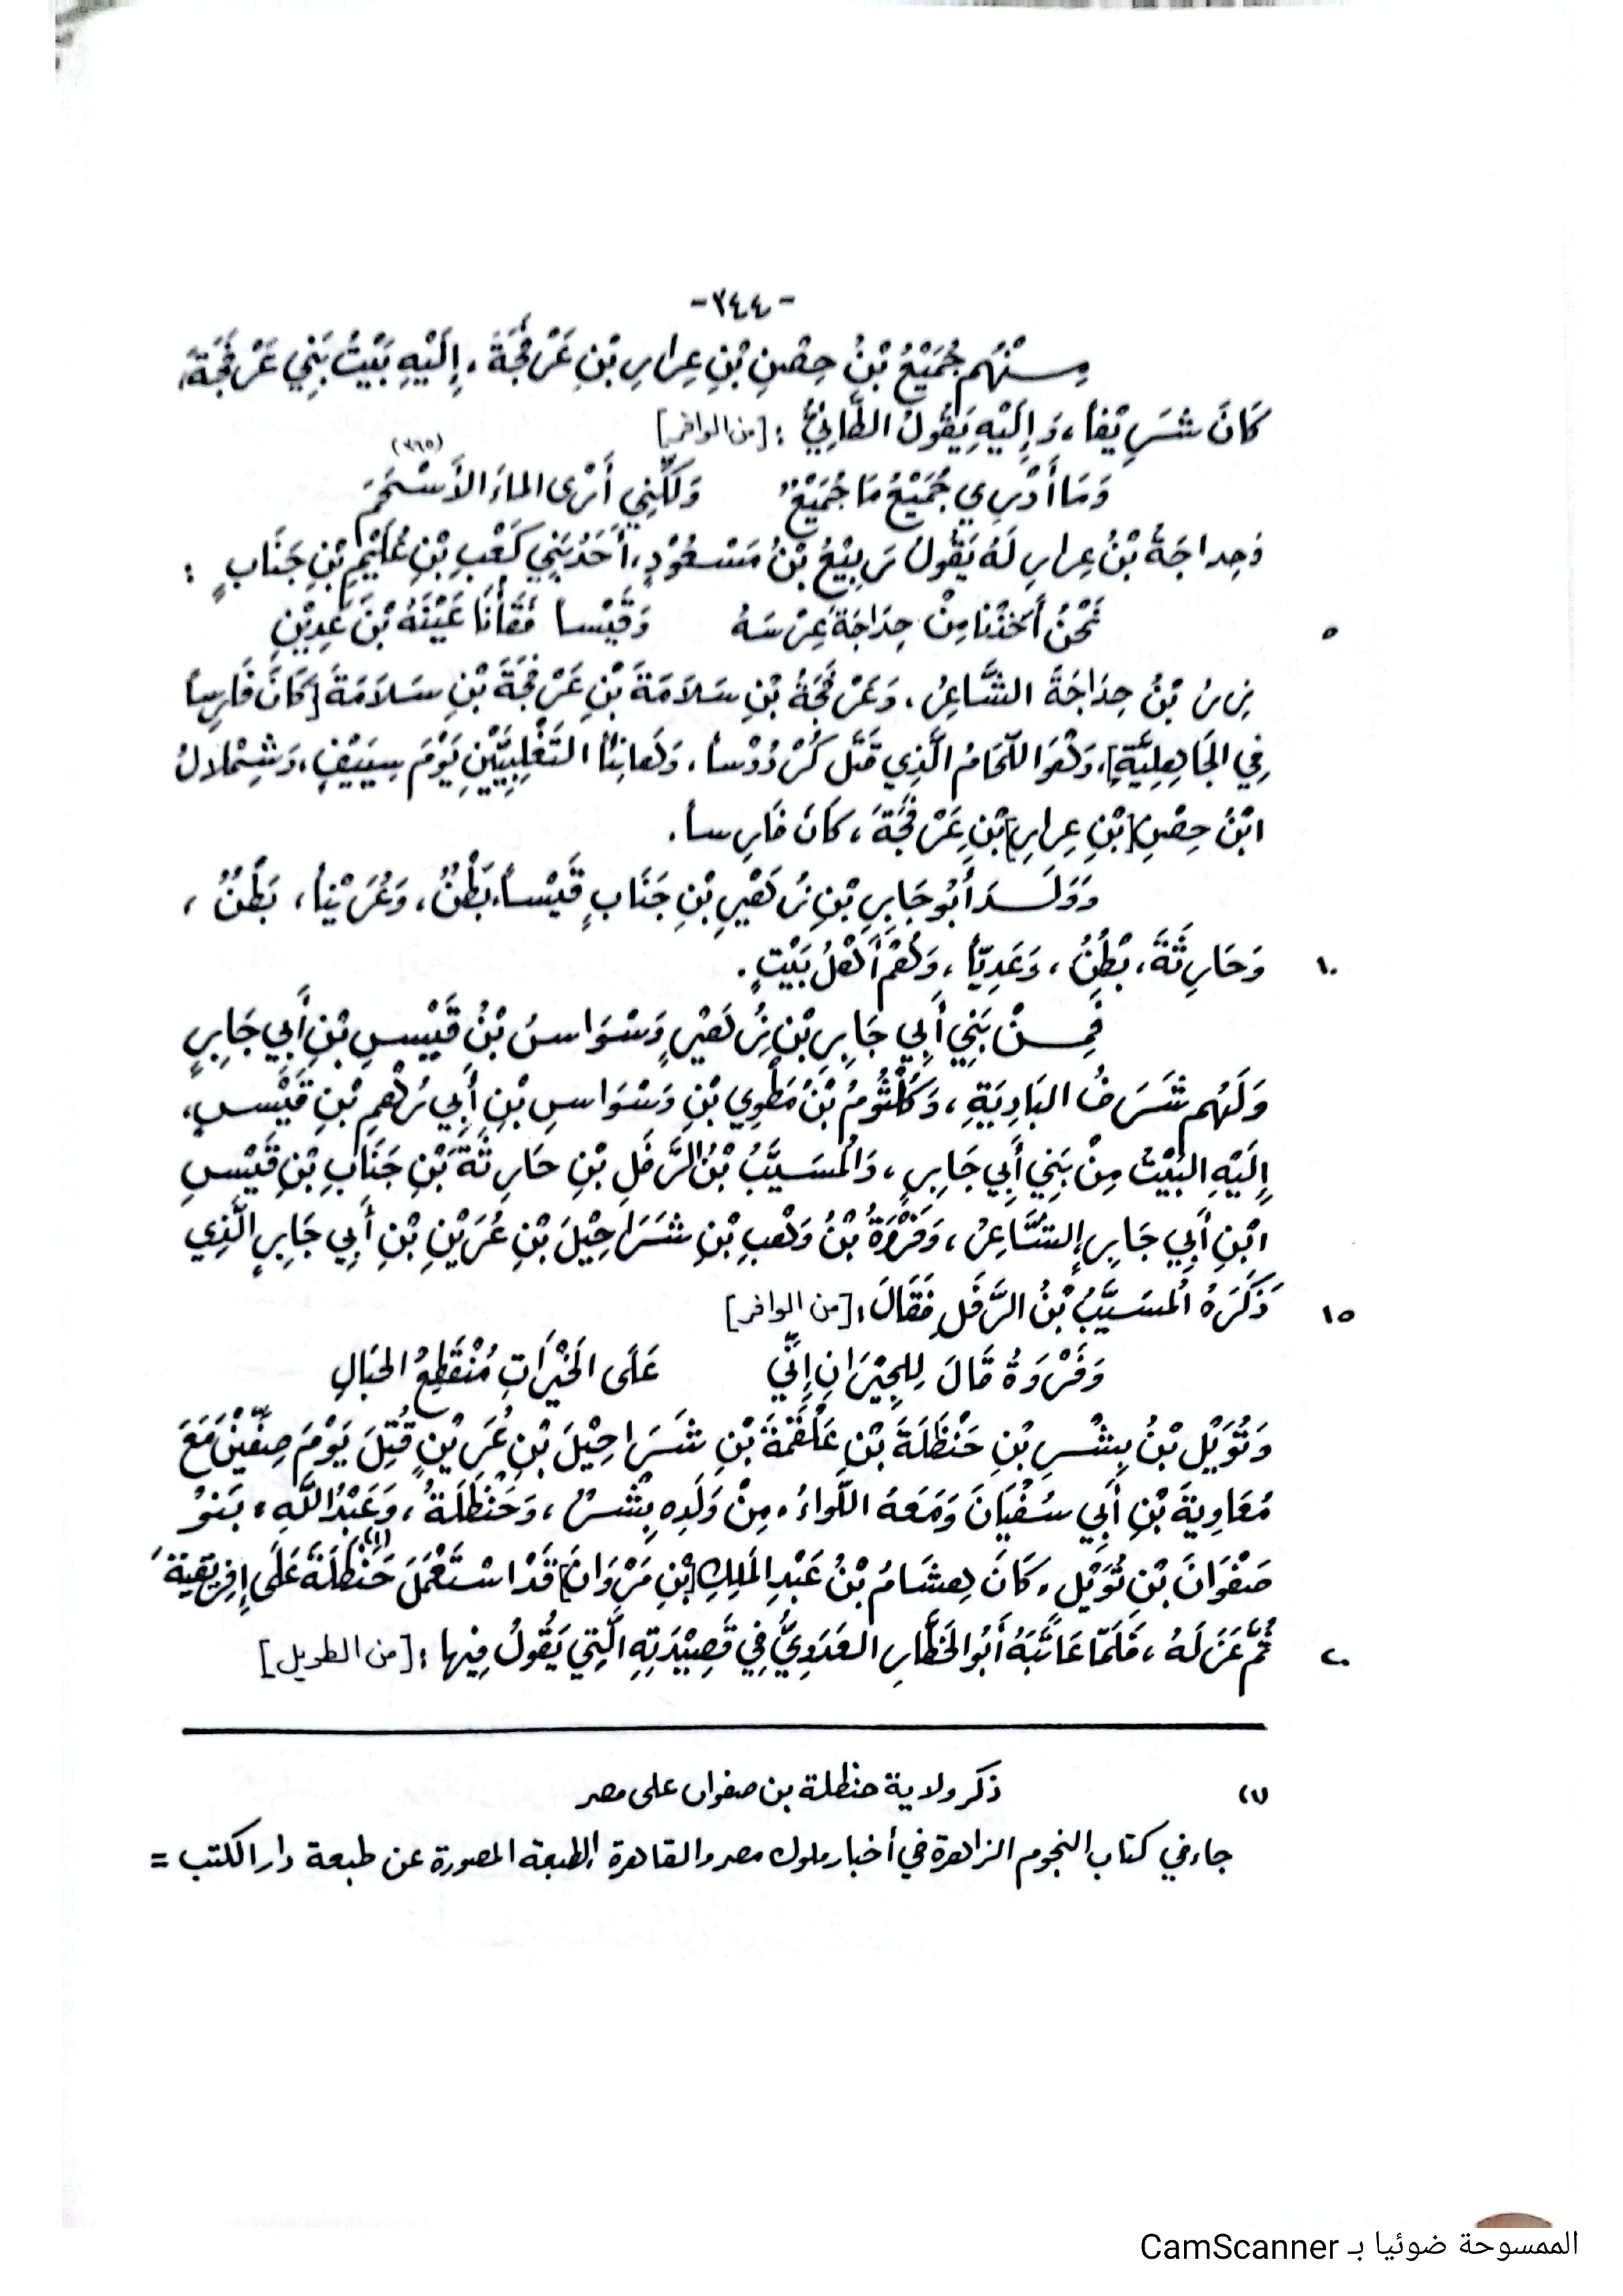 -٣٤٤-
مِنْهُم جُمَيْعُ بْنُ حِصْنِ بْنِ عِرارِ بْنِ عَرْفَجَةَ، إِلَيْهِ بَيْتُ بَنِي عَرْفَجَةَ،
كَانَ شَرِيْفاً، وَإِلَيْهِ يَقُولُ الطَّائِيُّ : [من الوافر]
(٣٦٥)
وَمَا أَدْرِي جُمَيْعُ مَا جُمَيْعٌ وَلَكِنِّي أَرَى الماءَ الأَسْحَمَ
وَحِداجَةُ بْنُ عِرارِ لَهُ يَقُولُ رَبِيْعُ بْنُ مَسْعُوْدٍ، أَحَدُ بَنِي كَعْبِ بْنِ عُلَيْمِ بْنِ جَنَابٍ :
٥ نَحْنُ أَخَذْنَا مِنْ حِدَاجَةَ عِرْسَهُ وَقَيْساً فَقَأْنَا عَيْنَهُ بْنَ عَدِيْنِ
زِرُ بْنُ حِدَاجَةَ الشَّاعِرُ، وَعَرْفَجَةُ بْنِ سَلاَمَةَ بْنِ عَرْفَجَةَ بْنِ سَلاَمَةَ [كَانَ فَارِساً
فِي الجَاهِلِيَّةِ]، وَهُوَ اللَّحَّامُ الَّذِي قَتَلَ كُرْدُوْساً، وَهَانِئاً التَّغْلِبِيَّيْنِ يَوْمَ سِيَيْفٍ، وَشِمْلالُ
ابْنُ حِصْنِ [بْنِ عِرارِ] بْنِ عَرْفَجَةَ، كَانَ فَارِساً.
وَوَلَـدَ أَبُو جَابِرِ بْنِ زُهَيْرِ بْنِ جَنَابٍ قَيْساً، بَطْنٌ، وَعُرَيْناً، بَطْنٌ،
١٠ وَحَارِثَةَ، بَطْنٌ، وَعَدِيّاً، وَهُمْ أَهْلُ بَيْتٍ.
فَمِـنْ بَنِي أَبِي جَابِرِ بْنِ زُهَيْرٍ وَسْوَاسُ بْنُ قَيْسِ بْنِ أَبِي جَابِرٍ
وَلَهُم شَرَفُ البَادِيَةِ، وَكُلْثُومُ بْنُ مَطْوِي بْنِ وَسْوَاسِ بْنِ أَبِي رُهْمِ بْنِ قَيْسٍ،
إِلَيْهِ البَيْتُ مِنْ بَنِي أَبِي جَابِرٍ، وَالمُسَيَّبُ بْنُ الرَّفَلِ بْنِ حَارِثَةَ بْنِ جَنَابِ بْنِ قَيْسِ
ابْنِ أَبِي جَابِرٍ الشَّاعِرُ، وَفَرْوَةُ بْنُ وَهْبِ بْنِ شَرَاحِيْلَ بْنِ عُرَيْنِ بْنِ أَبِي جَابِرٍ الَّذِي
١٥ ذَكَرَهُ المُسَيَّبُ بْنُ الرَّفَلِ فَقَالَ : [من الوافر]
وَفَرْوَةُ قَالَ لِلجِيْرَانِ إِنِّي عَلَى الخَيْرَاتِ مُنْقَطِعُ الحِبَالِ
وَتُوَيْلُ بْنُ بِشْرِ بْنِ حَنْظَلَةَ بْنِ عَلْقَمَةَ بْنِ شَرَاحِيْلَ بْنِ عُرَيْنٍ قُتِلَ يَوْمَ صِفِّيْنَ مَعَ
مُعَاوِيَةَ بْنِ أَبِي سُفْيَانَ وَمَعَهُ اللِّوَاءُ، مِنْ وَلَدِهِ بِشْرٌ، وَحَنْظَلَةُ، وَعَبْدُ اللَّهِ، بَنُوْ
صَفْوَانَ بْنِ تُوَيْلٍ، كَانَ هِشَامُ بْنُ عَبْدِ المَلِكِ [بْنِ مَرْوَانَ] قَدْ اسْتَعْمَلَ حَنْظَلَةَ(١) عَلَى إِفْرِيْقِيَةَ
٢٠ ثُمَّ عَزَلَهُ، فَلَمَّا عَاتَبَهُ أَبُو الخَطَّارِ العَدَوِيُّ فِي قَصِيْدَتِهِ الَّتِي يَقُولُ فِيْهَا : [من الطويل]
(١) ذكر ولاية حنظلة بن صفوان على مصر
جاء في كتاب النجوم الزاهرة في أخبار ملوك مصر والقاهرة الطبعة المصورة عن طبعة دار الكتب =
الممسوحة ضوئيا بـ CamScanner